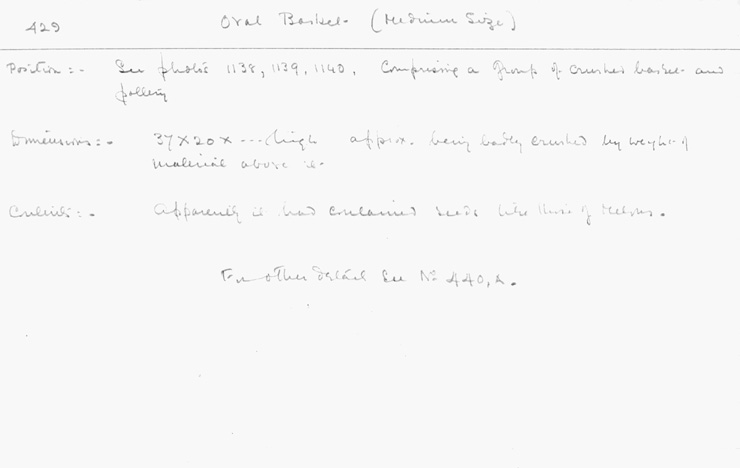 429 Oval Basket. (Medium Size)
Position :- See photo's 1138, 1139, 1140, Comprising a group of crushed basket and
pottery
Dimensions :- 37 x 20 x --- high approx. being badly crushed by weight of
material above it.
Contents :- Apparently it had contained seeds like those of Melons.
For other detail See No 440, A.